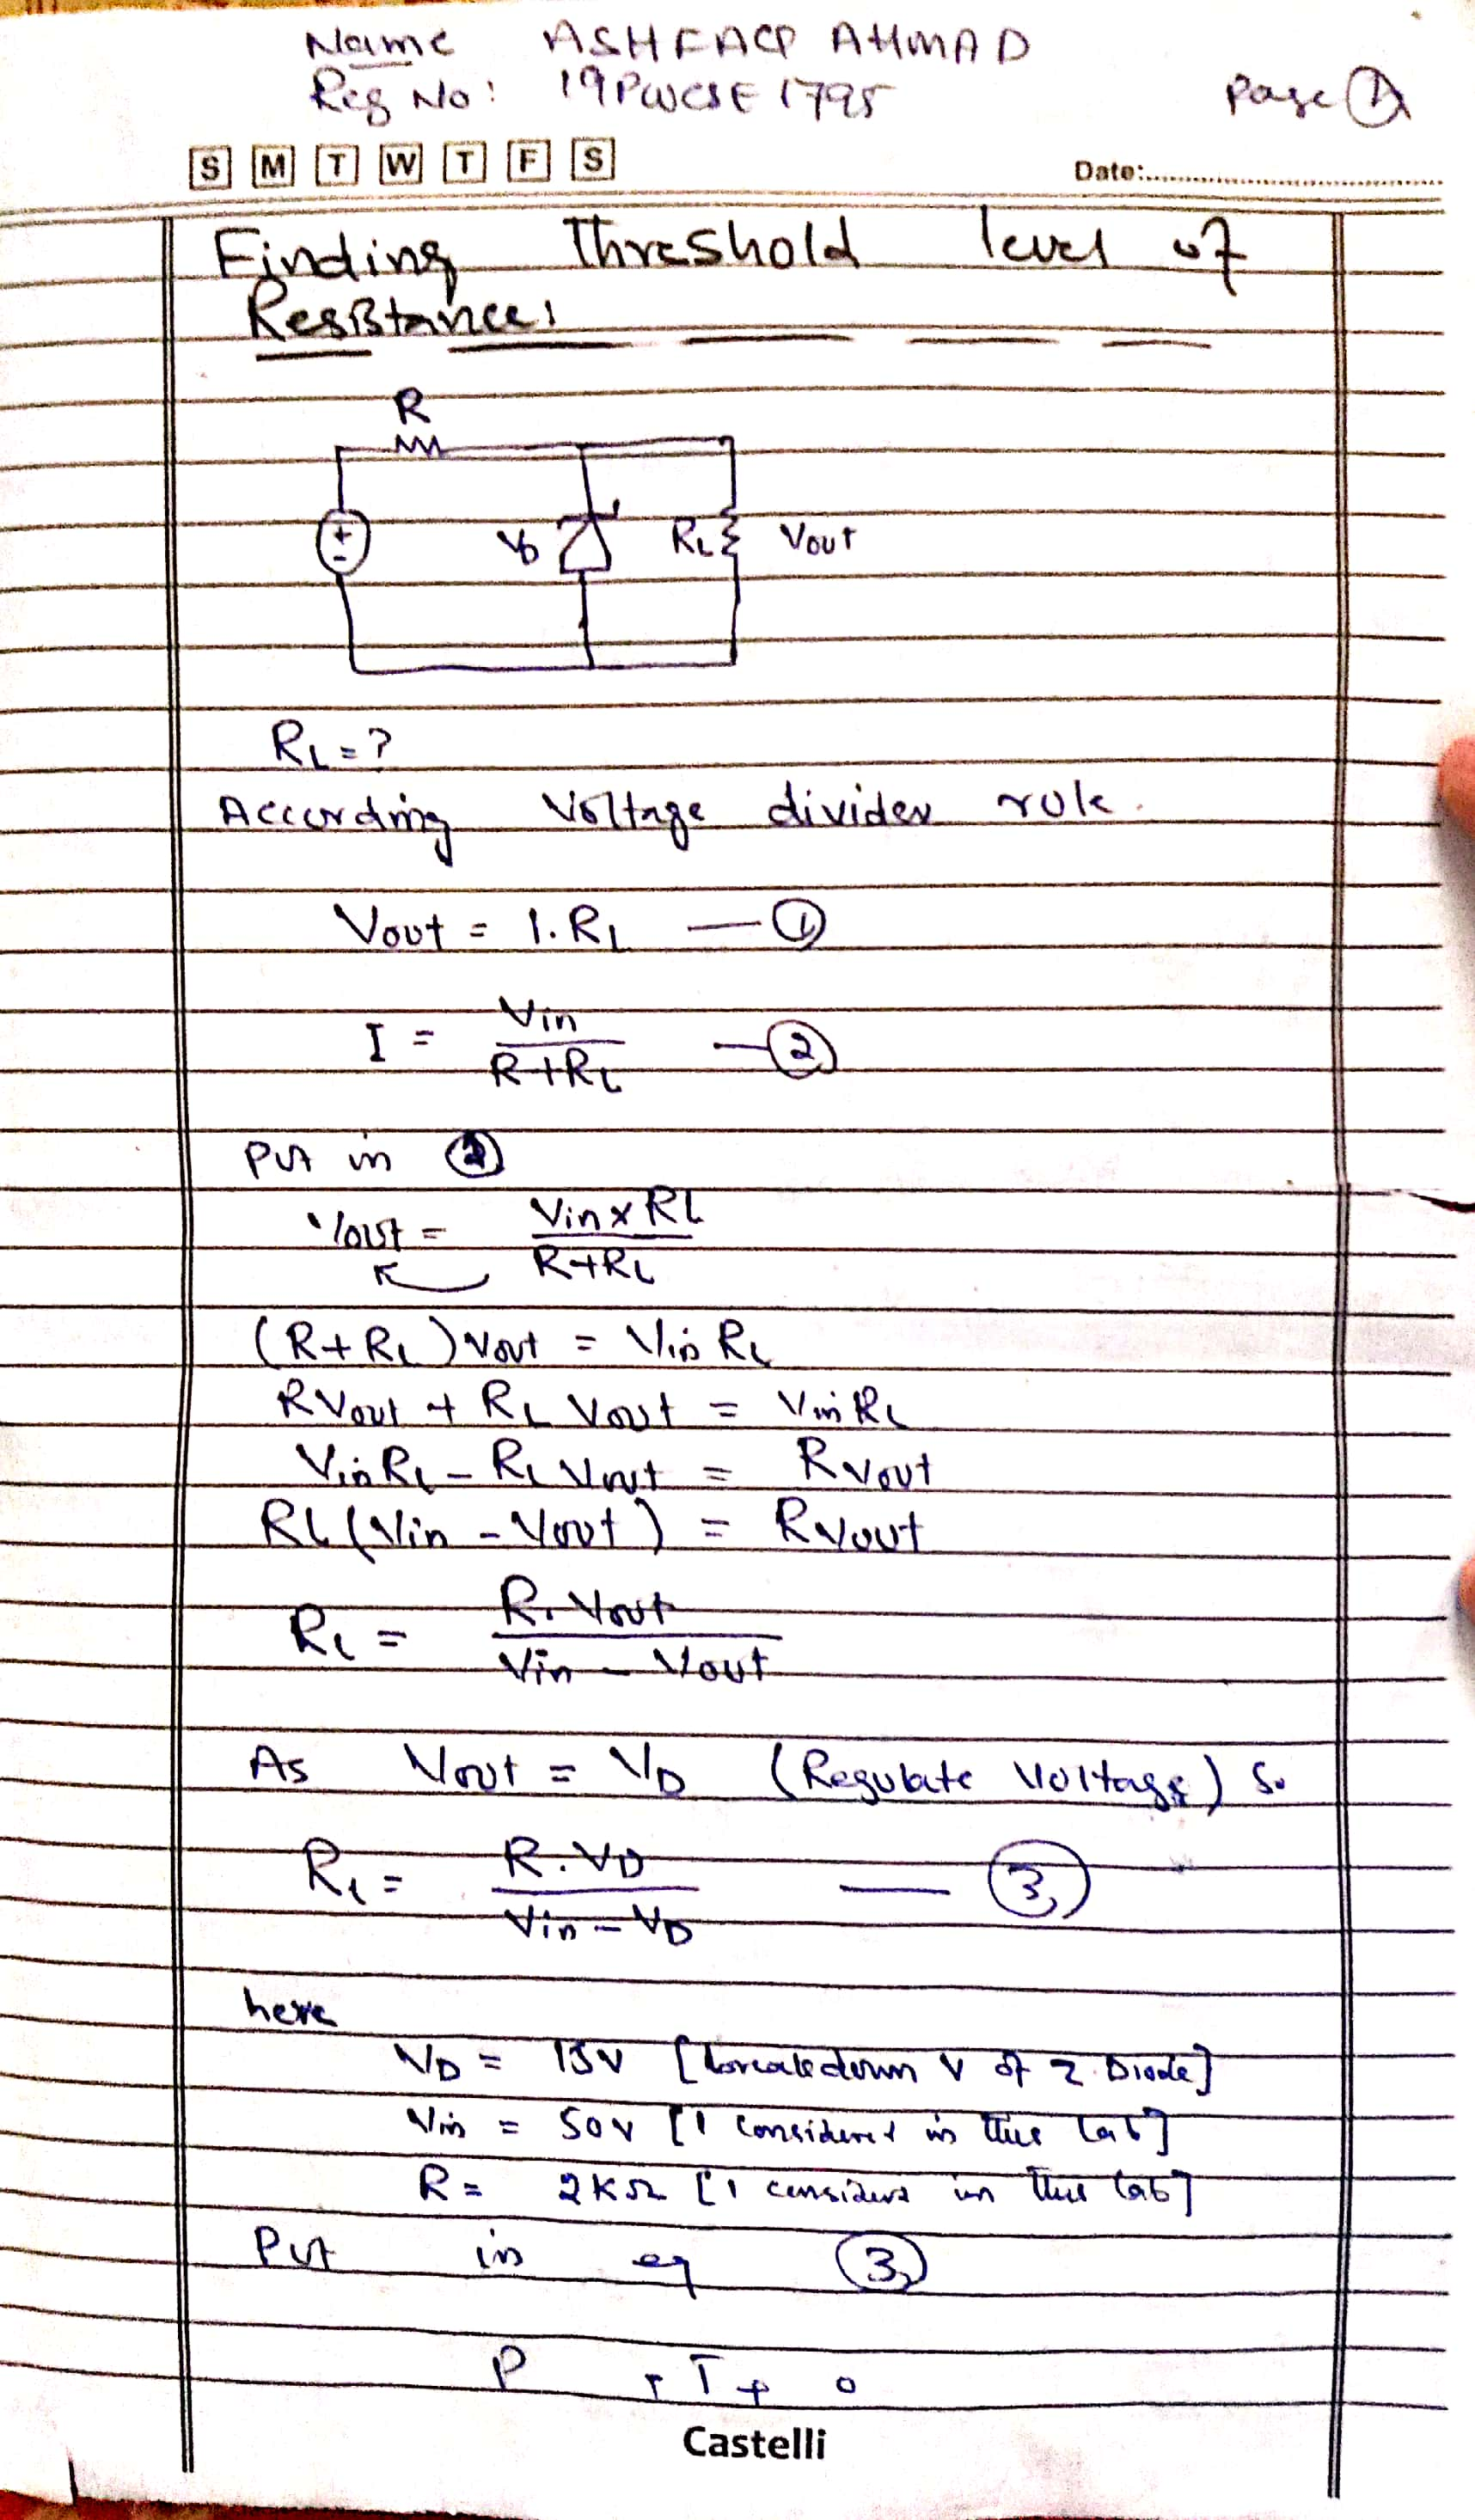 Name ASHFAQ AHMAD
Reg No: 19PWCSE1795
Page
S M T W T F S
Date:
Finding Threshold level of
Resistance:
R
+
-
VD
RL
Vout
RL = ?
According Voltage divider rule.
Vout = I.RL — ①
I = Vin / R+RL — ②
Put in
Vout = Vin x RL / R+RL
(R+RL)Vout = Vin RL
RVout + RL Vout = Vin RL
Vin RL - RL Vout = RVout
RL (Vin - Vout) = RVout
RL = R. Vout / Vin - Vout
As Vout = VD (Regulate Voltage) So
RL = R.VD / Vin - VD — ③
here
VD = V [breakdown V of Z. Diode]
Vin = 50V [I considered in this Lab]
R = 2KΩ [I considers in this Lab]
Put in eq ③
P , T , O
Castelli